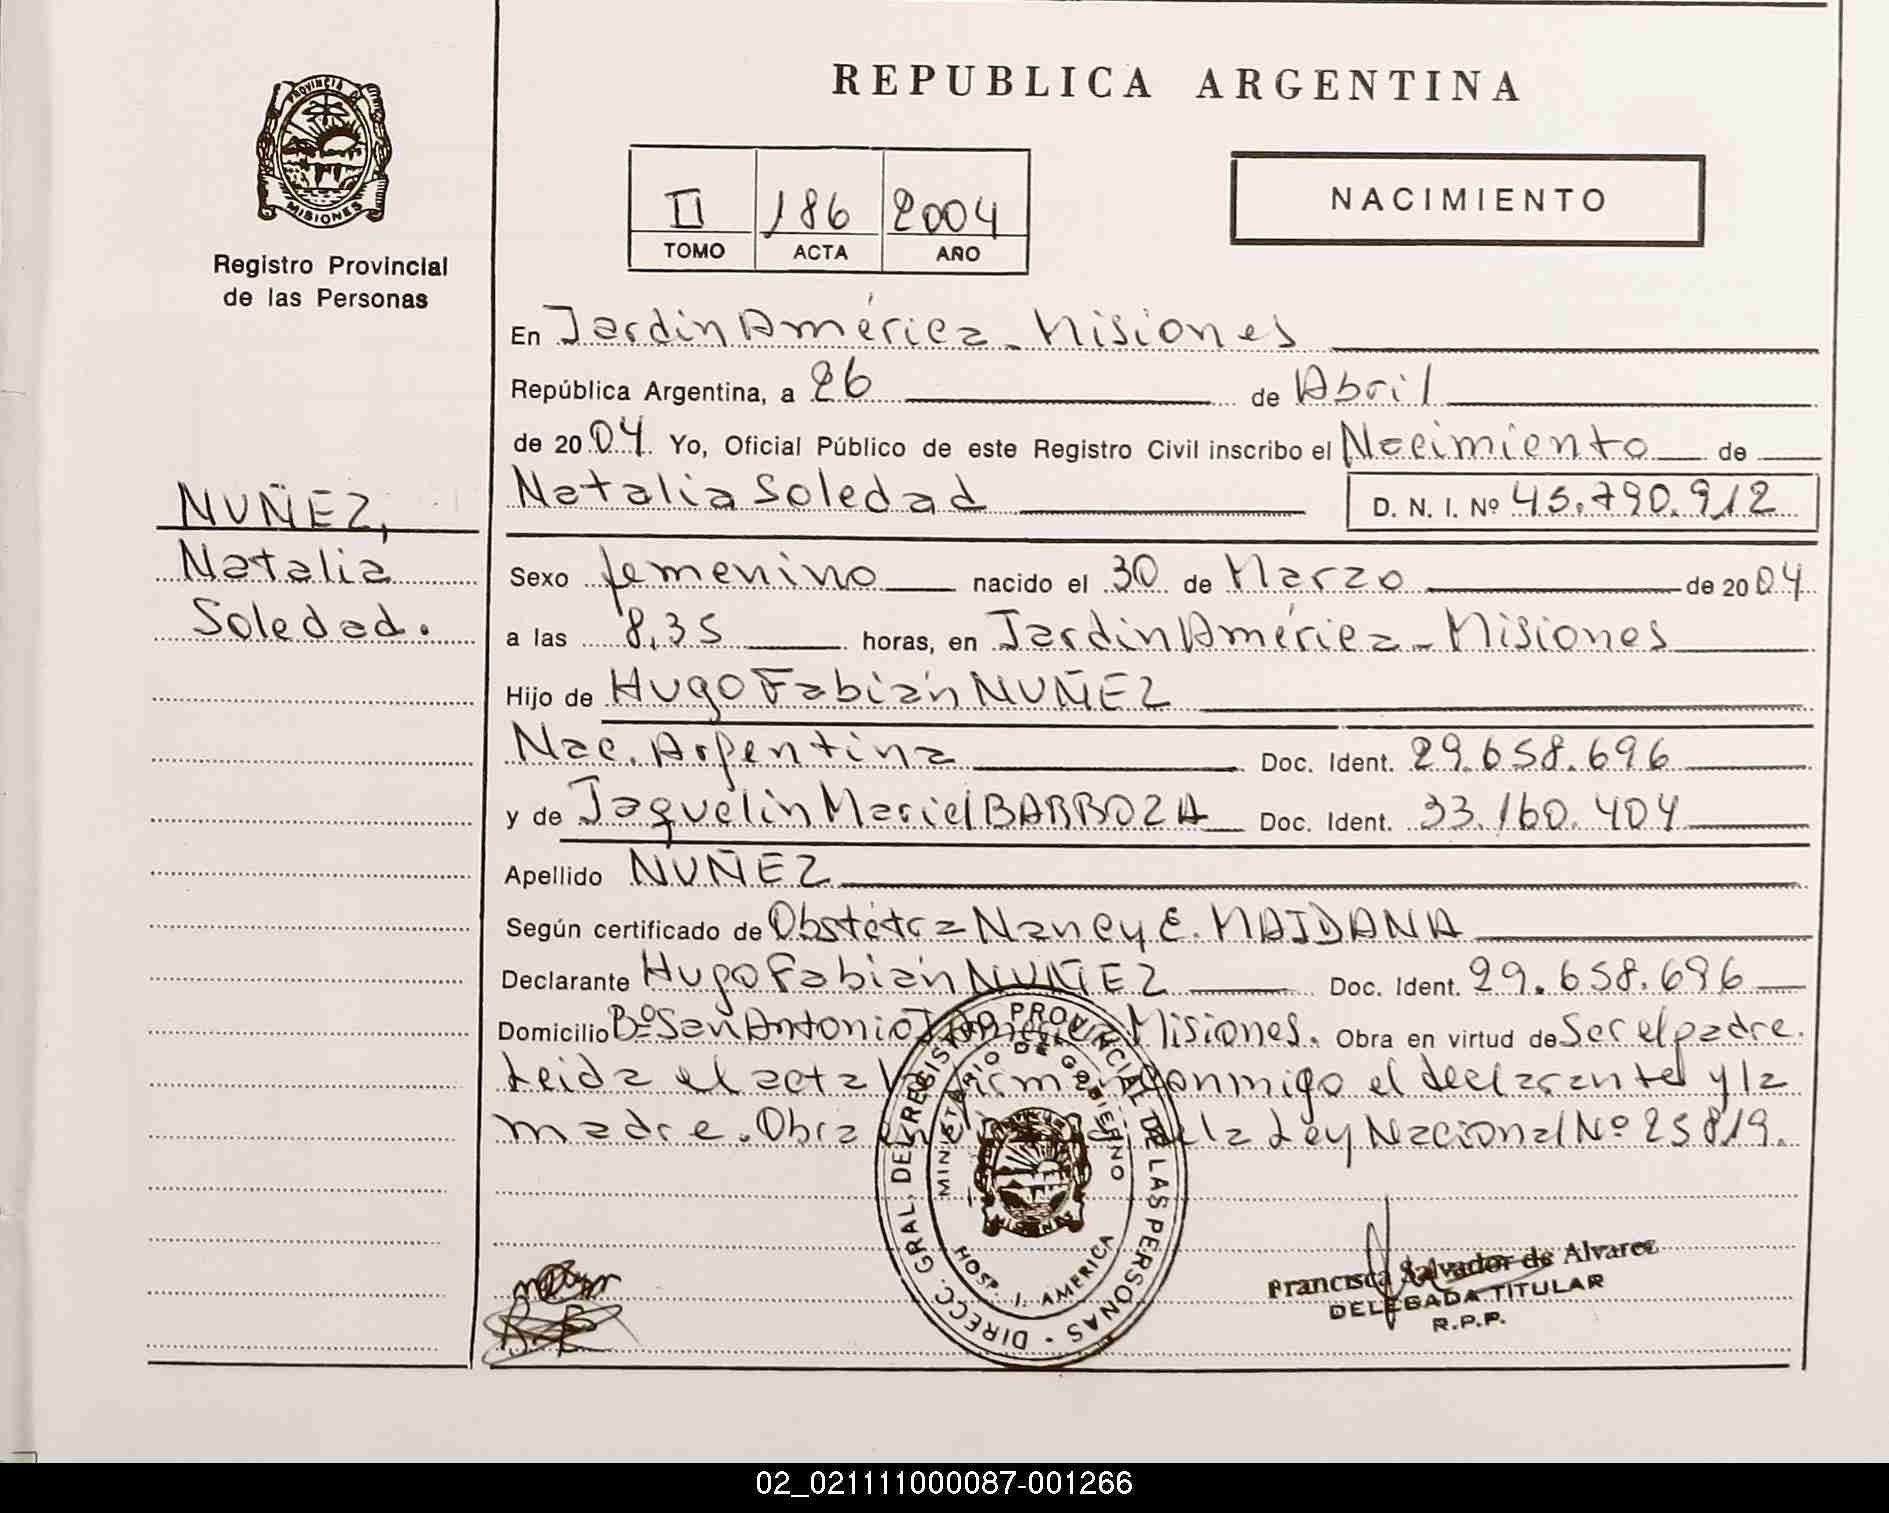 REPUBLICA ARGENTINA
PROVINCIA DE
MISIONES
Registro Provincial
de las Personas
II 186 2004
TOMO ACTA AÑO
NACIMIENTO
En Jardín América - Misiones
República Argentina, a 26 de Abril
de 2004. Yo, Oficial Público de este Registro Civil inscribo el Nacimiento de
Natalia Soledad D. N. I. Nº 45.790.912
NUÑEZ,
Natalia
Soledad.
Sexo femenino nacido el 30 de Marzo de 2004
a las 8,35 horas, en Jardín América - Misiones
Hijo de Hugo Fabián NUÑEZ
Nac. Argentina Doc. Ident. 29.658.696
y de Jaquelin Mariel BARBOZA Doc. Ident. 33.160.404
Apellido NUÑEZ
Según certificado de Obstétra Nancy E. MAIDANA
Declarante Hugo Fabián NUÑEZ Doc. Ident. 29.658.696
Domicilio Bº San Antonio Misiones. Obra en virtud de Ser el padre.
Leida el acta conmigo el declarante y la
madre. Obra la Ley Nacional Nº 25819.
DIRECC. GRAL. DEL REGISTRO PROVINCIAL DE LAS PERSONAS
MINISTERIO DE GOBIERNO
MISIONES
HOSP. J. AMERICA
Francisca Salvador de Alvarez
DELEGADA TITULAR
R.P.P.
02_021111000087-001266